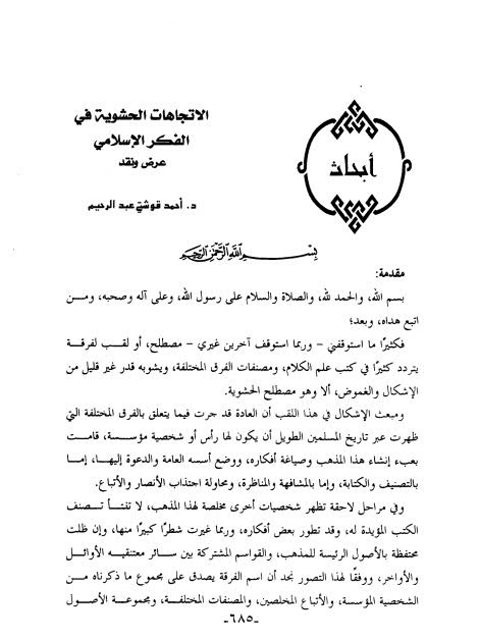 الاتجاهات الحشوية في
الفكر الإسلامي
عرض ونقد
أبحاث
د. أحمد قوشتي عبد الرحيم
بسم الله الرحمن الرحيم
مقدمة:
بسم الله، والحمد لله، والصلاة والسلام على رسول الله، وعلى آله وصحبه، ومن
اتبع هداه، وبعد؛
فكثيرًا ما استوقفني – وربما استوقف آخرين غيري – مصطلح، أو لقب لفرقة
يتردد كثيرًا في كتب علم الكلام، ومصنفات الفرق المختلفة، ويشوبه قدر غير قليل من
الإشكال والغموض، ألا وهو مصطلح الحشوية.
ومبعث الإشكال في هذا اللقب أن العادة قد جرت فيما يتعلق بالفرق المختلفة التي
ظهرت عبر تاريخ المسلمين الطويل أن يكون لها رأس أو شخصية مؤسسة، قامت
بعبء إنشاء هذا المذهب وصياغة أفكاره، ووضع أسسه العامة والدعوة إليها، إما
بالتصنيف والكتابة، وإما بالمشافهة والمناظرة، ومحاولة اجتذاب الأنصار والأتباع.
وفي مراحل لاحقة تظهر شخصيات أخرى مخلصة لهذا المذهب، لا تفتأ تصنف
الكتب المؤيدة له، وقد تطور بعض أفكاره، وربما غيرت شطرًا كبيرًا منها، وإن ظلت
محتفظة بالأصول الرئيسة للمذهب، والقواسم المشتركة بين سائر معتنقيه الأوائل
والأواخر، ووفقًا لهذا التصور نجد أن اسم الفرقة يصدق على مجموع ما ذكرناه من
الشخصية المؤسسة، والأتباع المخلصين، والمصنفات المختلفة، ومجموعة الأصول
-٦٨٥-